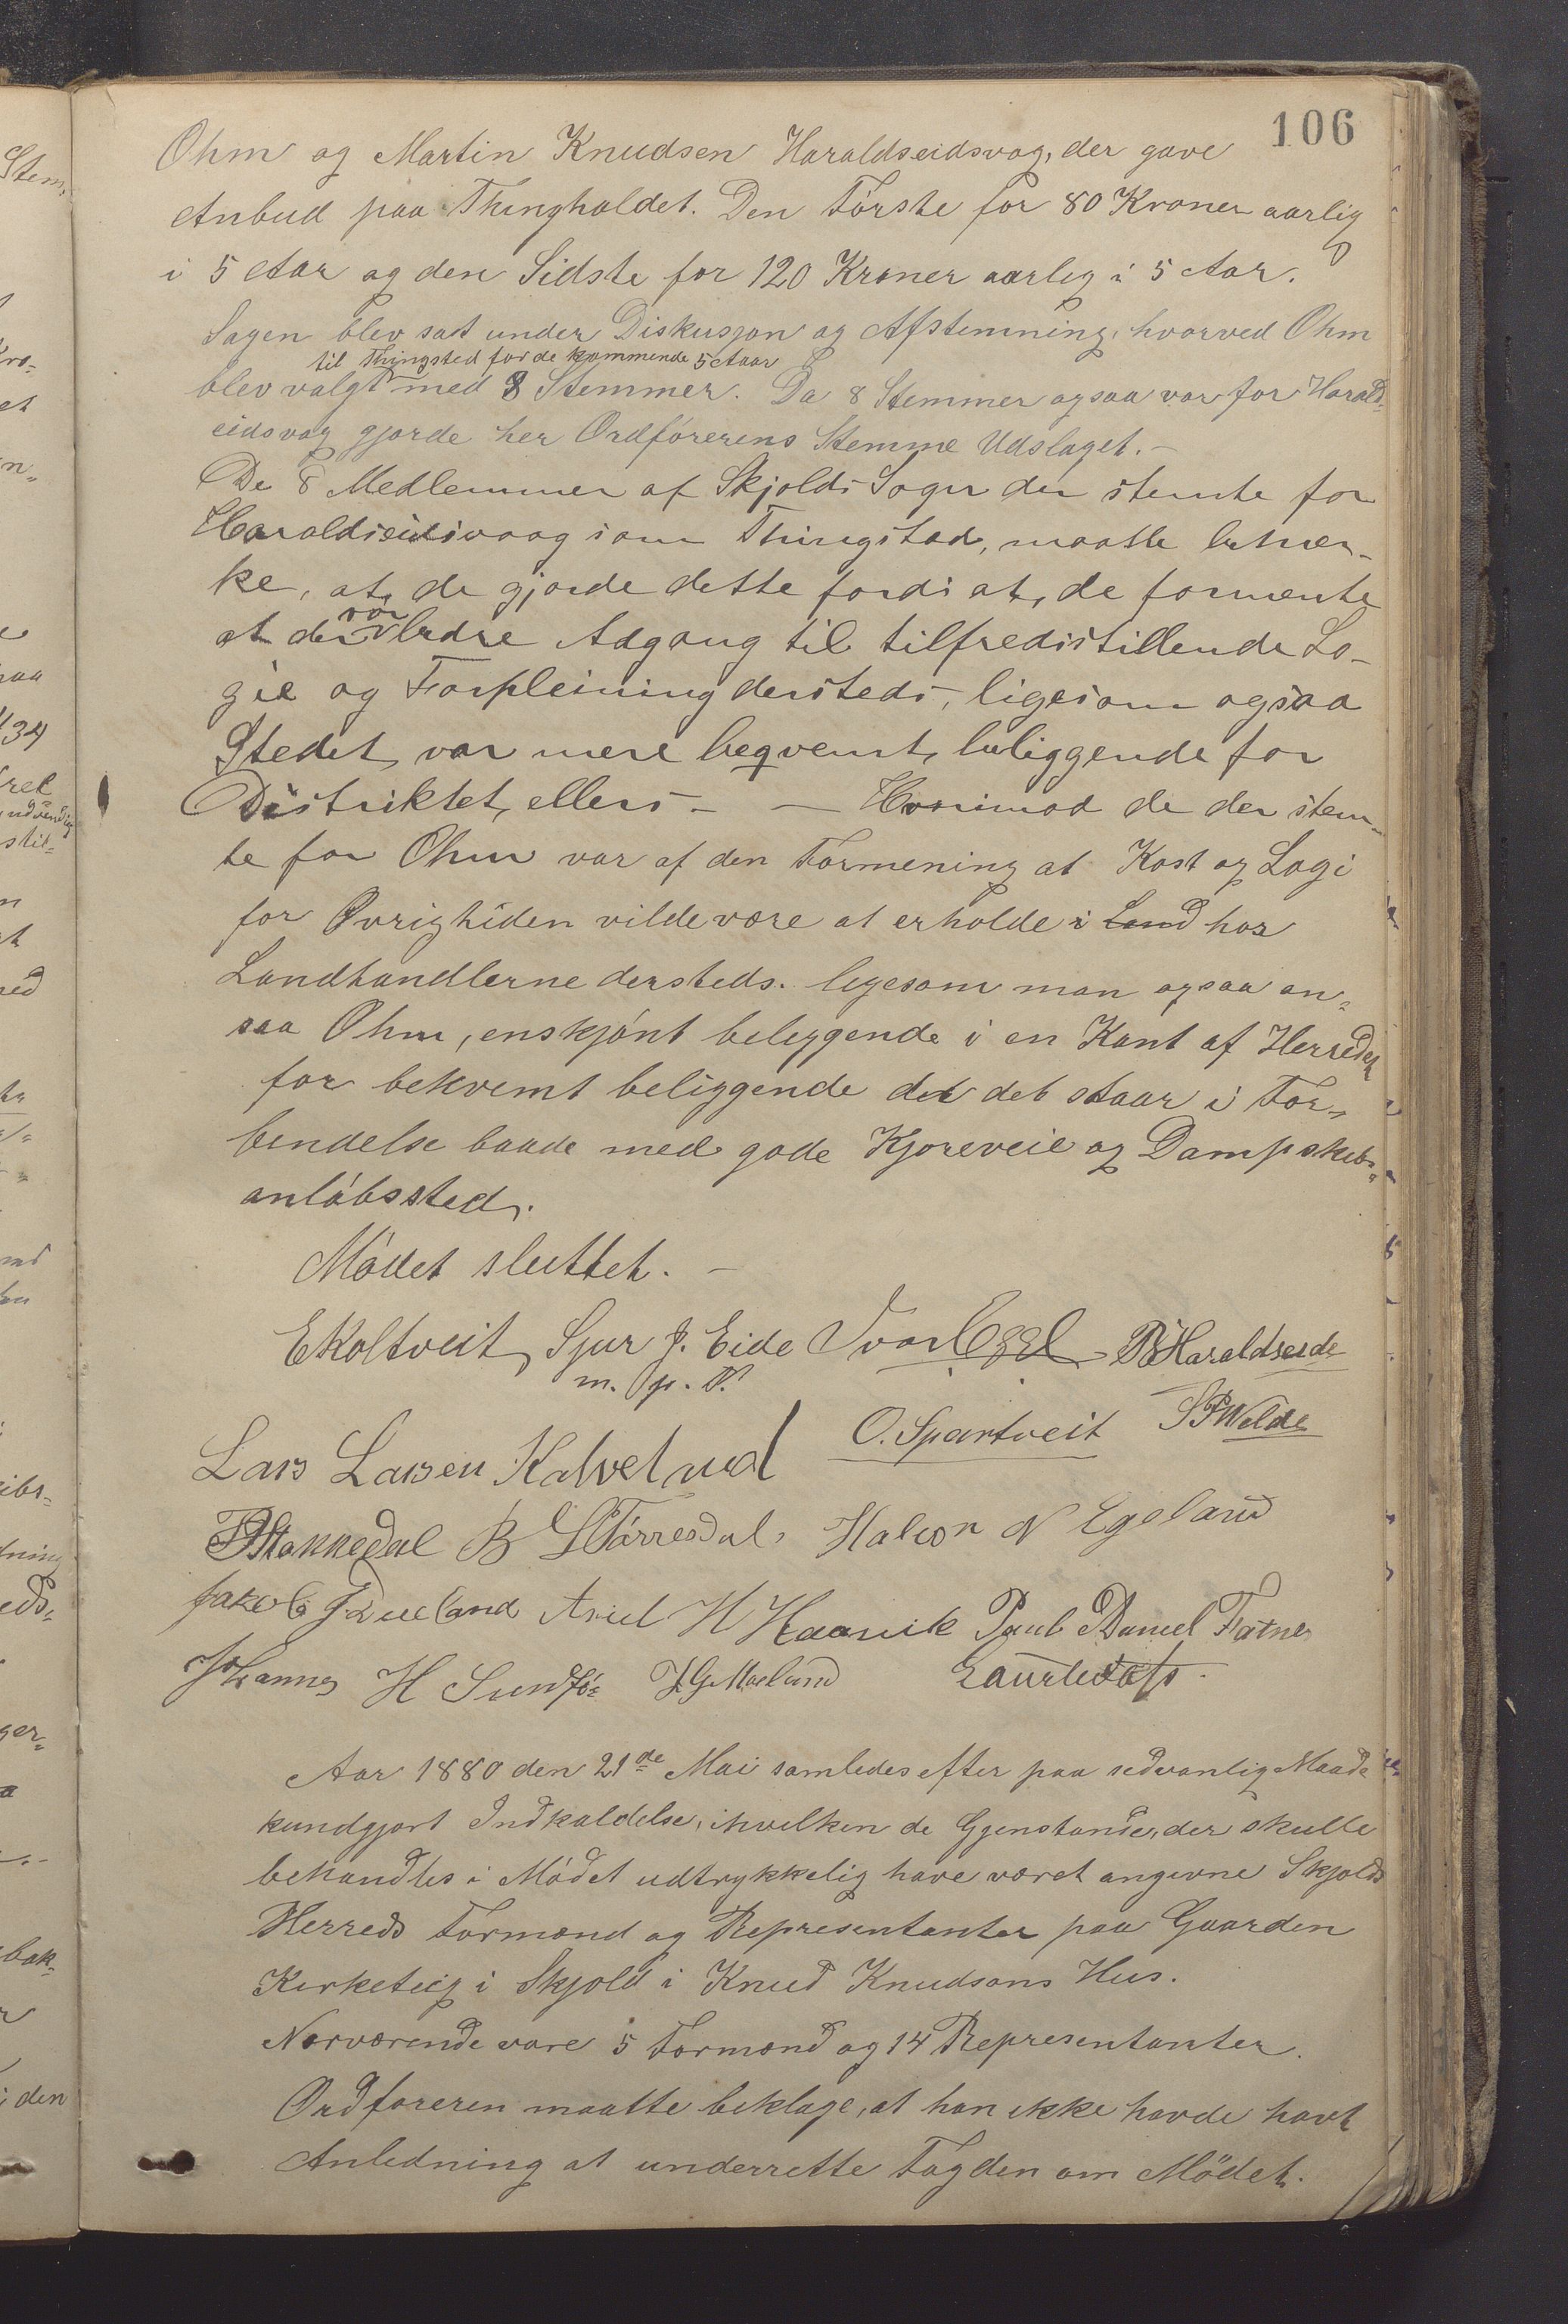 106
Ohm og Martin Knudsen Haraldseidsvag, der gave
Anbud paa Thingholdet. Den Förste for 80 Kroner aarlig
i 5 Aar og den Sidste for 120 Kroner aarlig i 5 Aar.
Sagen blev sat under Diskusjon og Afstemning, hvorved Ohm
til Thingsted for de kommende 5 Aaar
blev valgt med 8 Stemmer. Da 8 Stemmer ogsaa var for Harald-
eidsvag gjorde her Ordförerens Stemme Udslaget. -
De 8 Medlemmer af Skjolds Sogn der stemte for
Haraldseidsvaag som Thingsted, maatte bemær-
ke, at de gjorde dette fordi at, de formente
at der var bedre Adgang til tilfredsstillende Lo-
gie og Forpleining dersteds, ligesom ogsaa
Stedet var mere beqvemt, beliggende for
Distriktet, ellers - — Hvorimod de der stem-
te for Ohm var af den Formening at Kost og Logi
for Øvrigheden vilde være at erholde i Land hos
Landhandlerne dersteds. ligesom man ogsaa an=
saa Ohm, enskjönt beliggende i en Kant af Herredet
for bekvemt beliggende det det staar i For=
bindelse baade med gode Kjøreveie og Dampskibs=
anløbssted.
Mödet sluttet. -
E Koltveit Sjur J. Eide Ivar Eggel B Haraldseide
m. p. P.
O. Spartveit SP Welde
Lars Larsen Kalvelund
Stakkedal B L Törresdal, Halvor N Egeland
Jakob J Lueland Ariel H Haavik Paul Daniel Fatne
Johannes H Sundför J G Mæland
Aar 1880 den 21de Mai samledes efter paa sedvanlig Maade
kundgjort Indkaldelse, ihvilken de Gjenstande, der skulle
behandles i Mödet udtrykkelig have været angivne Skjolds
Herreds Formænd og Repræsentanter paa Gaarden
Kirketeig i Skjold i Knud Knudsons Hus.
Nærværende vare 5 Formænd og 14 Representanter.
Ordføreren maatte beklage, at han ikke havde havt
Anledning at underrette Fogden om Mödet.